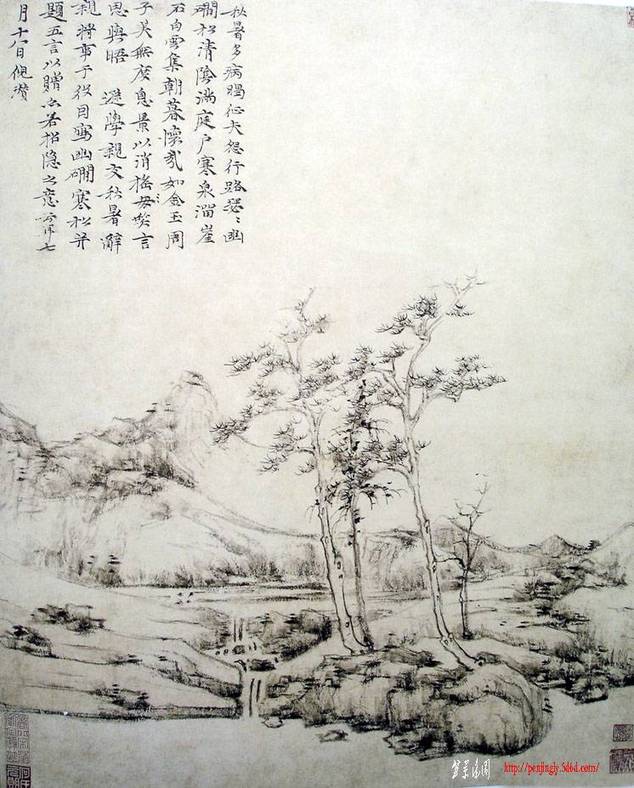 秋暑多病暍征夫怨行路瑟〻幽
磵松清陰滿庭户寒泉溜崖
石白雲集朝暮懷哉如金玉周
子美無度息景以消搖笑言
思與晤 遜學親友秋暑辭
親將事于役因寫幽磵寒松并
題五言以贈亦若招隱之意 七
月十八日倪瓚
http://penjingly.5d6d.com/